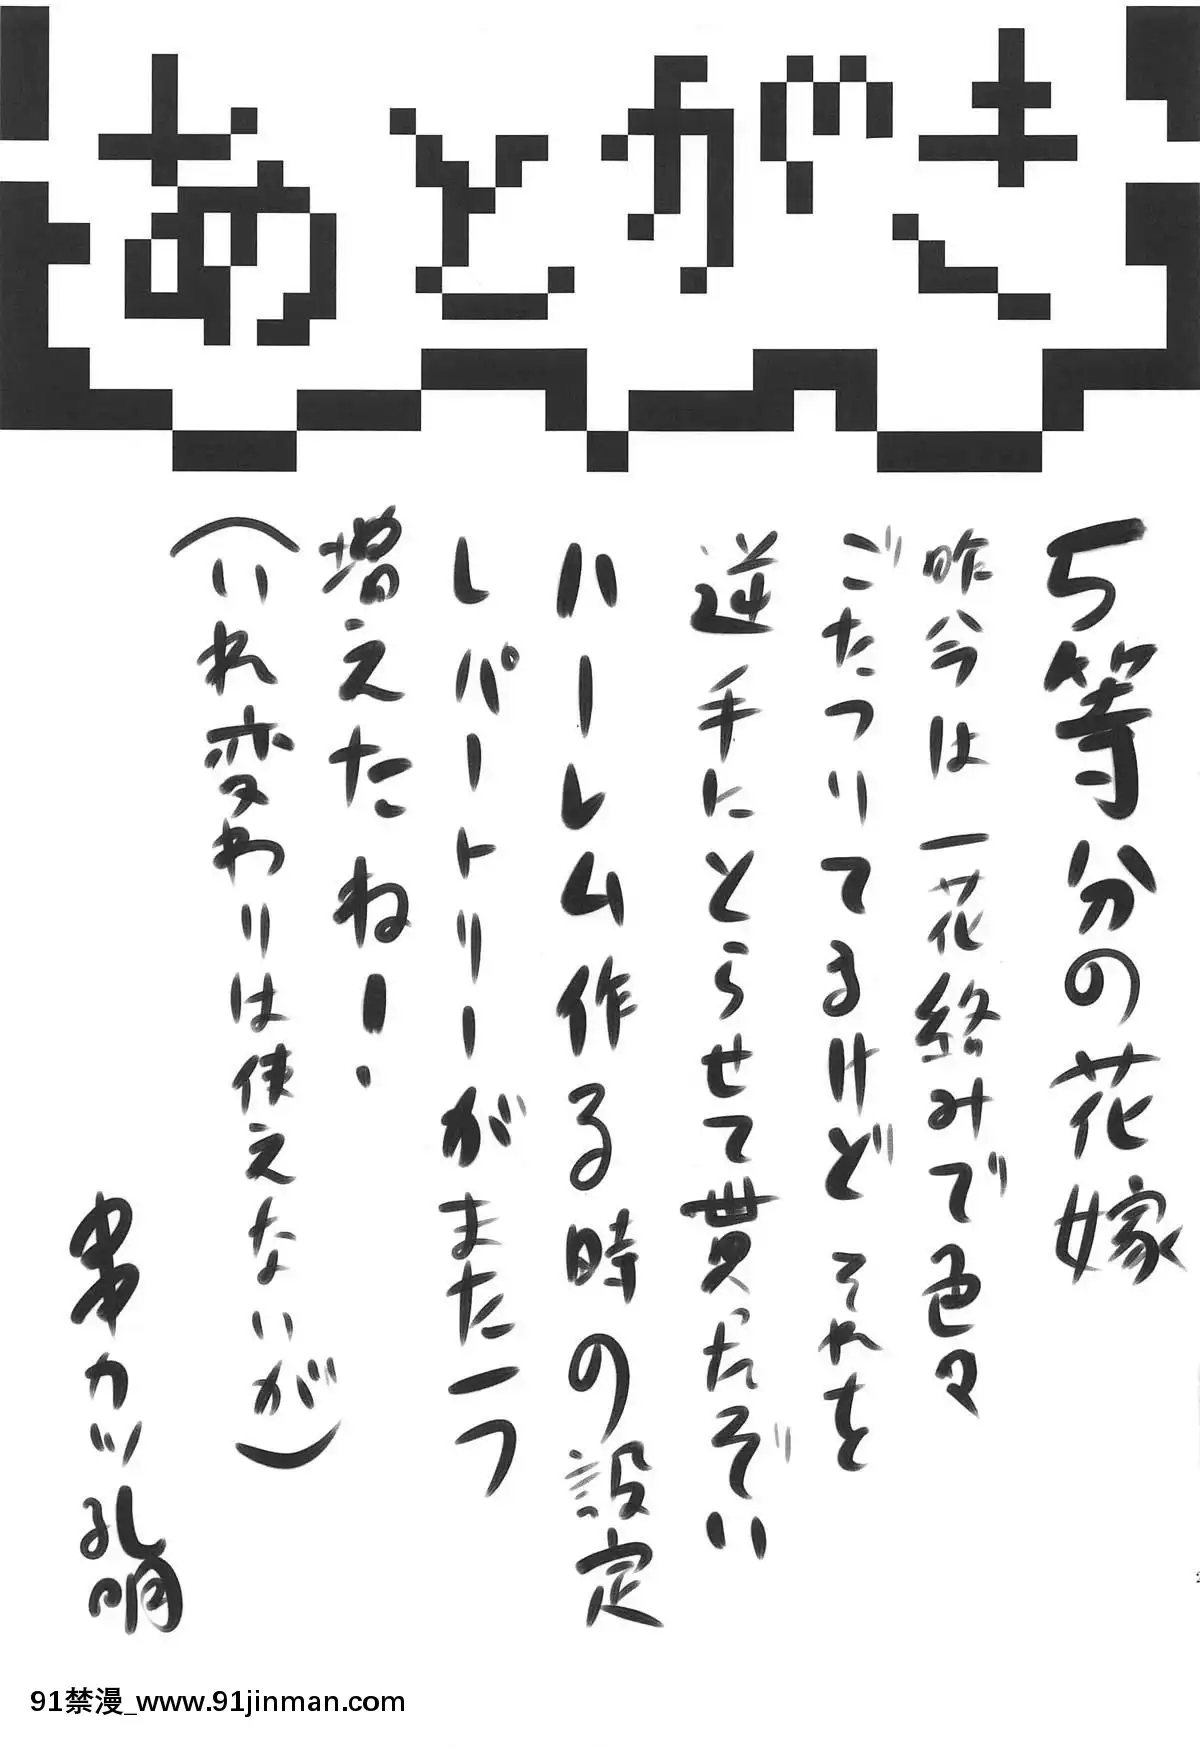 あとがき
5等分の花嫁
昨今は一花絡みで色々
ごたついてるけどそれを
逆手にとらせて貰ったぞい
ハーレム作る時の設定
レパートリーがまた一つ
増えたね!
(いれ変わりは使えないが)
串カツ孔明
91禁漫_www.91jinman.com